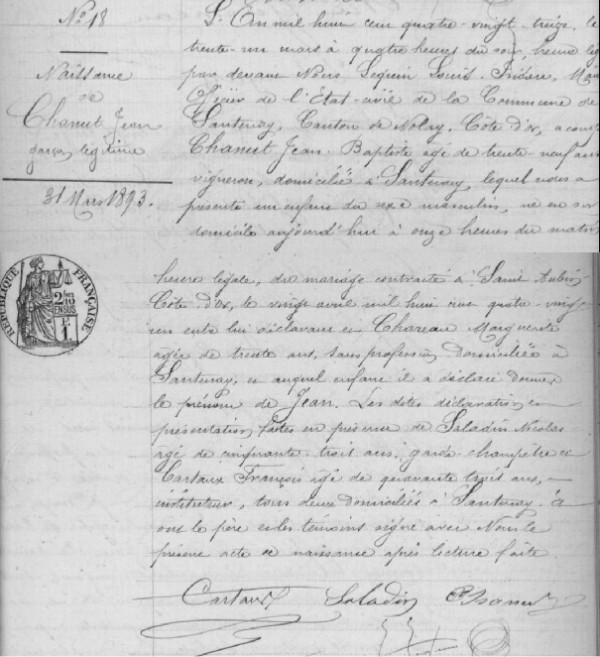 No 18
Naissance
de
Chanut Jean
garçon légitime
31 Mars 1893.
L'An mil huit cent quatre-vingt-treize, le
trente-un mars à quatre heures du soir, heure lég
par devant Nous Lequin Louis-Frédéric, Mai
Officier de l'État-civil de la Commune de
Santenay, Canton de Nolay, Côte d'or, a com
Chanut Jean-Baptiste âgé de trente-neuf ans
vigneron, domicilié à Santenay, lequel nous a
présenté un enfant du sexe masculin, né en son
domicile aujourd'hui à onze heures du matin
heure légale, du mariage contracté à Saint Aubin,
Côte d'Or, le vingt avril mil huit cent quatre-vingt
entre lui déclarant et Chareau Marguerite
âgée de trente ans, sans profession, domiciliée à
Santenay, et auquel enfant il a déclaré donner
le prénom de Jean. Les dites déclaration et
présentation faites en présence de Saladin Nicolas
âgé de cinquante-trois ans, garde-champêtre et
Cartaux François âgé de quarante trois ans,
instituteur, tous deux domiciliés à Santenay, &
ont le père et les témoins signé avec Nous le
présent acte de naissance après lecture faite.
Cartaux Saladin Chanut
RÉPUBLIQUE FRANÇAISE